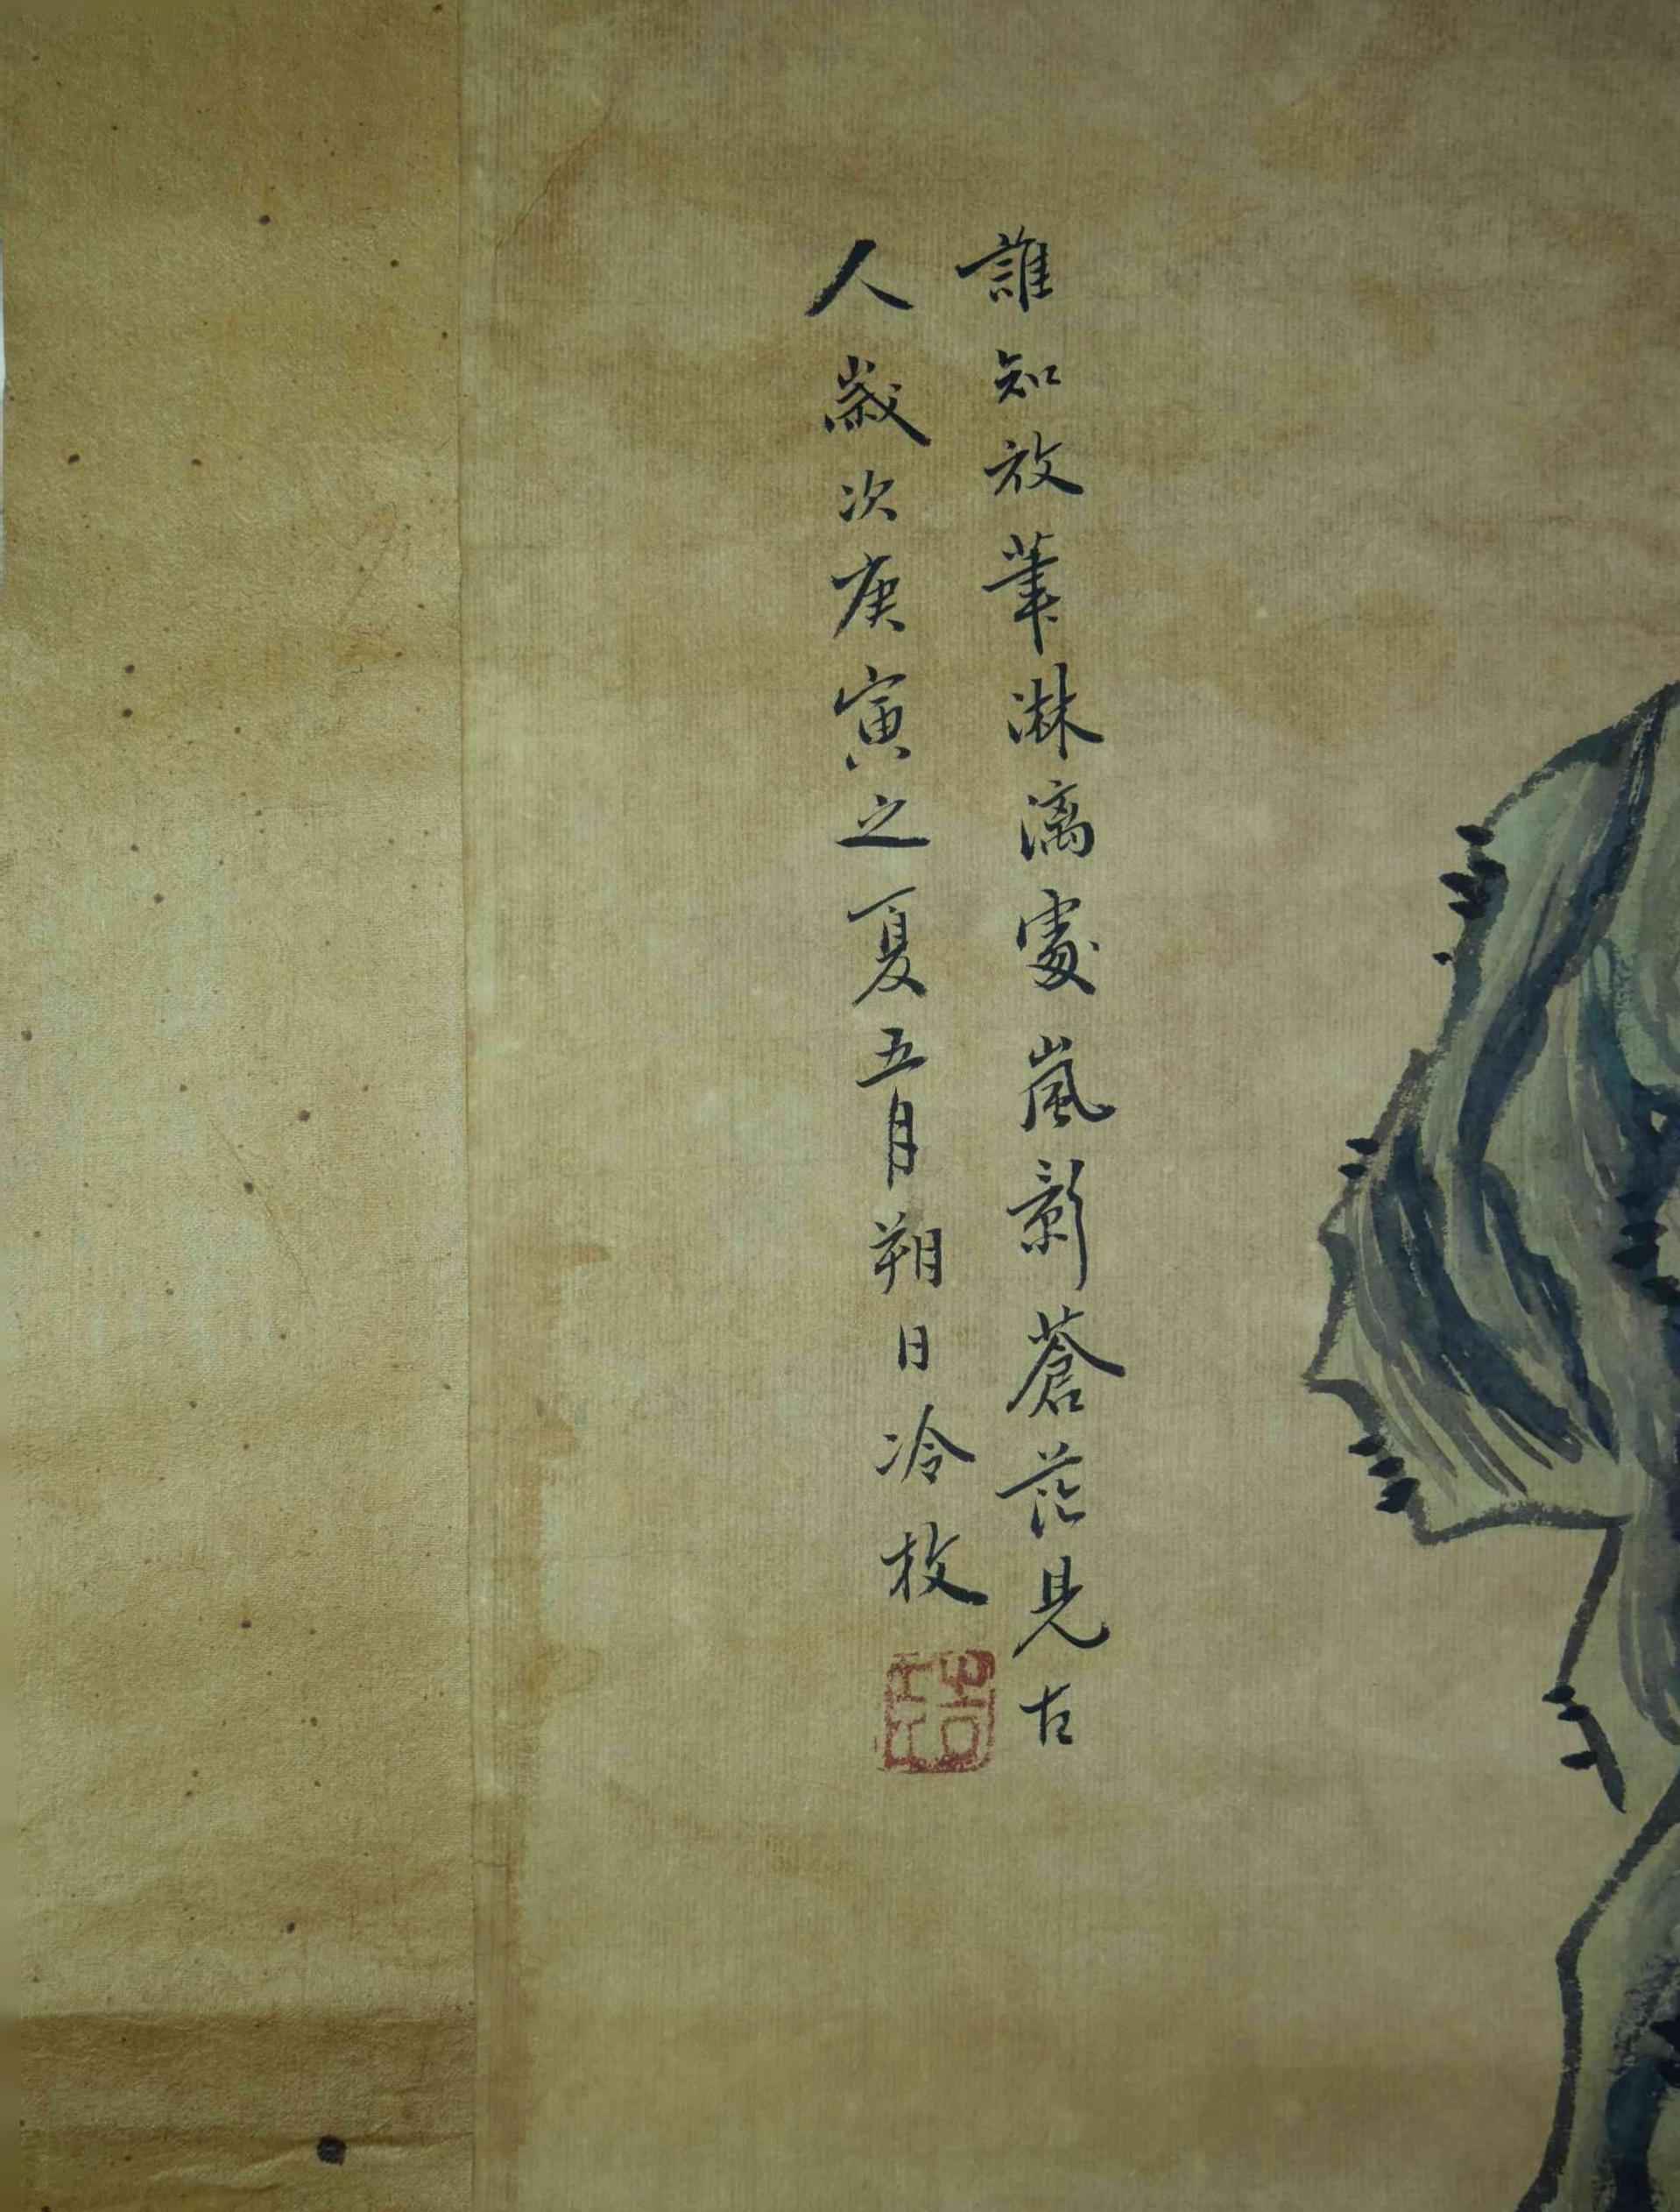 誰知放筆淋漓處嵐影蒼茫見古
人歲次庚寅之夏五月朔日冷枚